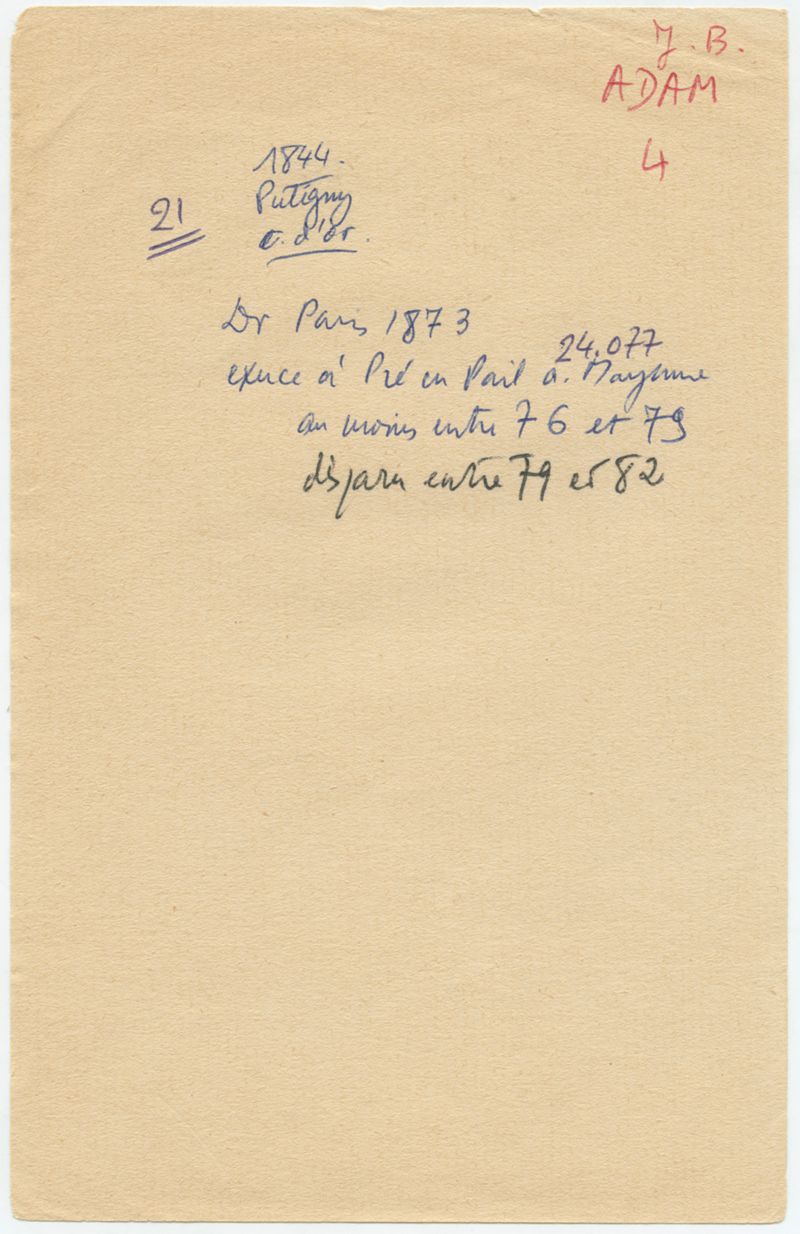 J. B.
ADAM
4
1844.
21
Putigny
C. d'Or.
Dr Paris 1873
24.077
exerce à Pré en Pail a. Mayenne
au moins entre 76 et 79
disparu entre 79 et 82